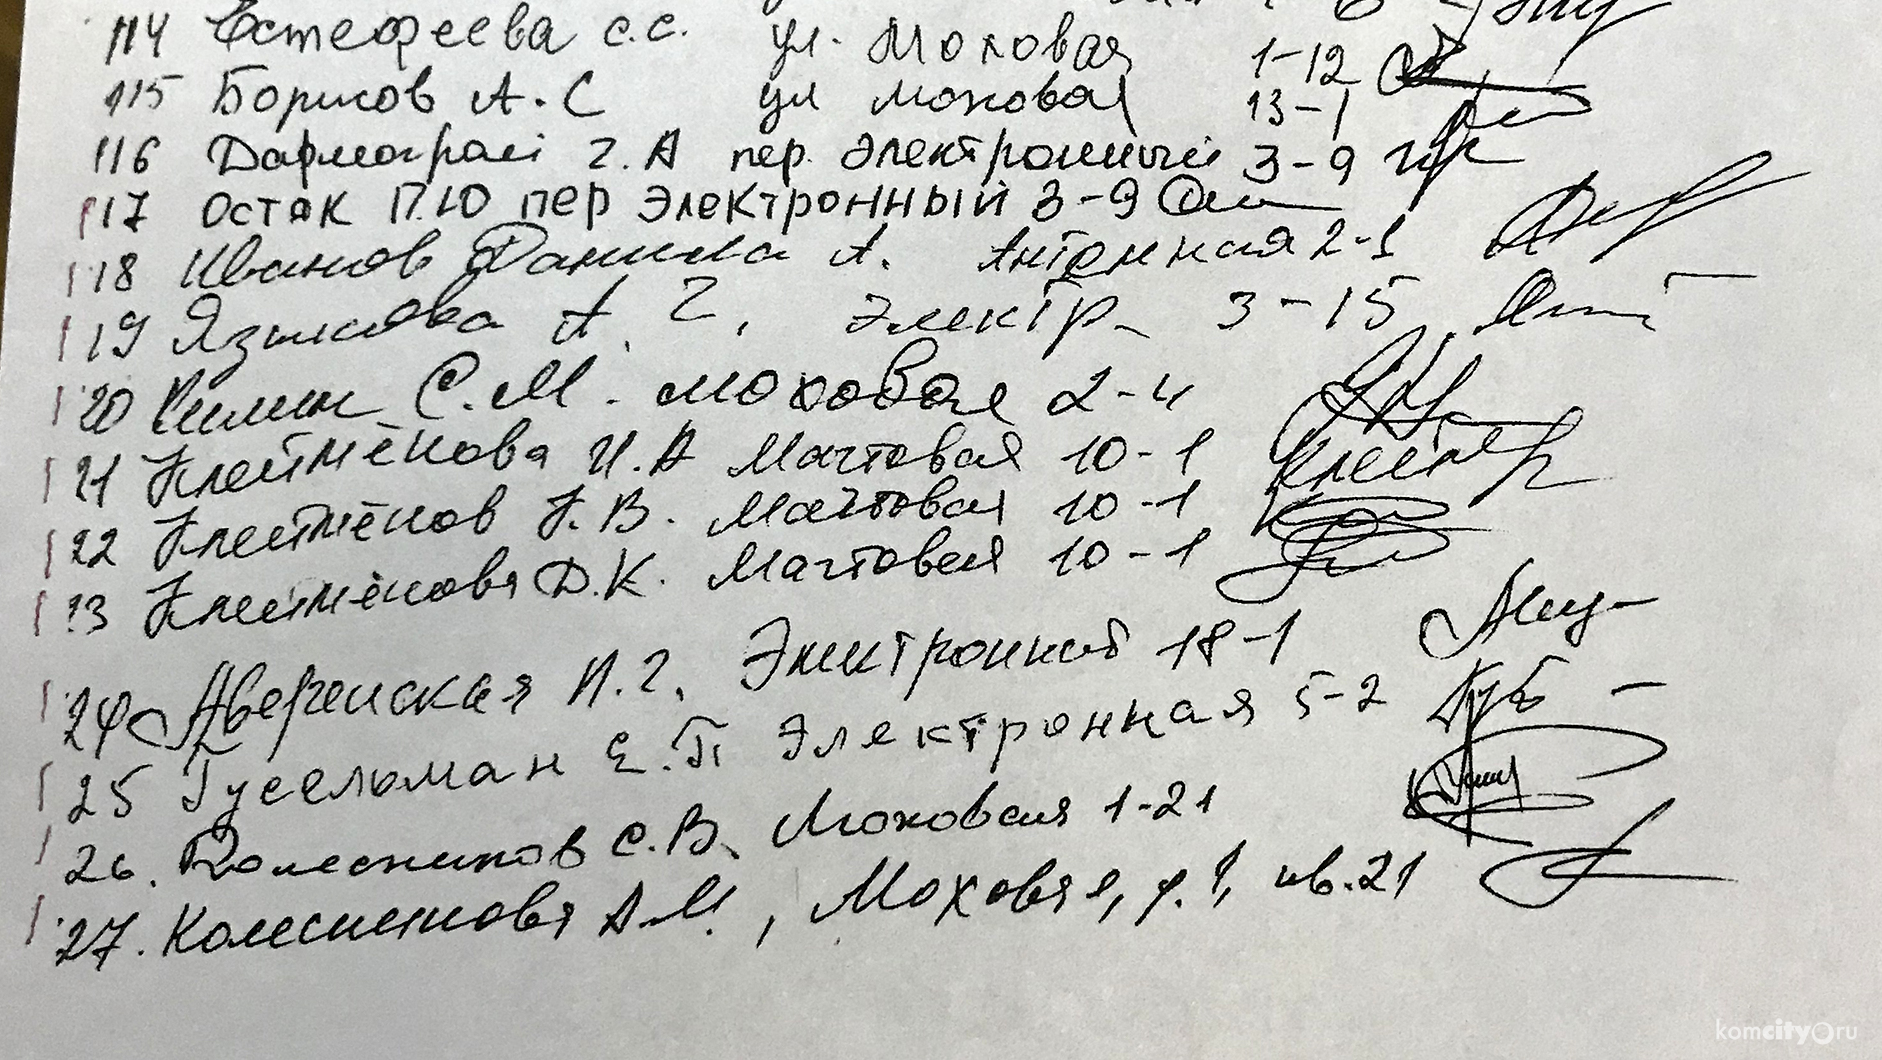 114 Естефеева С.С. ул. Моховая 1-12
115 Борисов А.С ул Моховая 13-1
116 Г.А пер. Электронный 3-9
117 Остяк П.Ю пер Электронный 3-9
118 Иванов Данила А. Антенная 2-1
119 Языкова А. Г. Электр. 3-15
120 Силин С.М. Моховая 2-4
121 Клеймёнова И.А Мачтовая 10-1
122 Клеймёнов К.В. Мачтовая 10-1
123 Клеймёнова Д.К. Мачтовая 10-1
124 18-1
125 Гусельман Е.П Электронная 5-2
126. Колесников С.В. Моховая 1-21
127. Колесникова А.М., Моховая, д.1, кв.21
komcity.ru